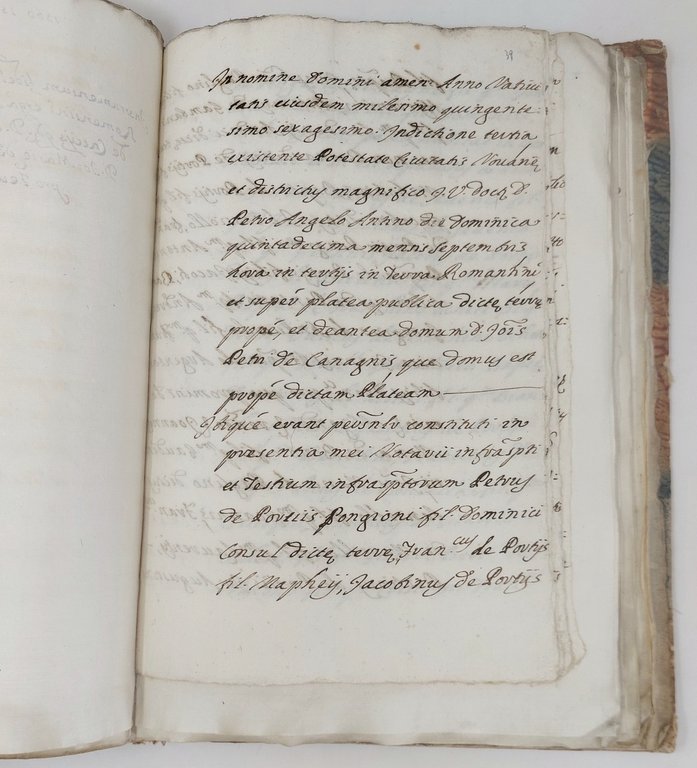 39
In nomine Domini amen. Anno Nativi
tatis eiusdem milesimo quingente
simo sexagesimo. Indictione tertia
existente Potestate Civitatis Novarię
et districtus magnifico J. V. doct. D.
Petro Angelo die Dominica
quintadecima mensis septembris
hora in tertijs in Terra Romanhini
et super platea publica dictę terrę
propé, et deantea domum d. Jois
Petri de Canagnis, que domus est
propé dictam Plateam
Ibiqué erant personlr constituti in
presentia mei Notarii infraspti
et Testium infrasptorum Petrus
de Portiis Pongioni fil. Dominici
Consul dictę terrę, Fran.cus de Portijs
fil. Mapheij, Jacobinus de Portijs